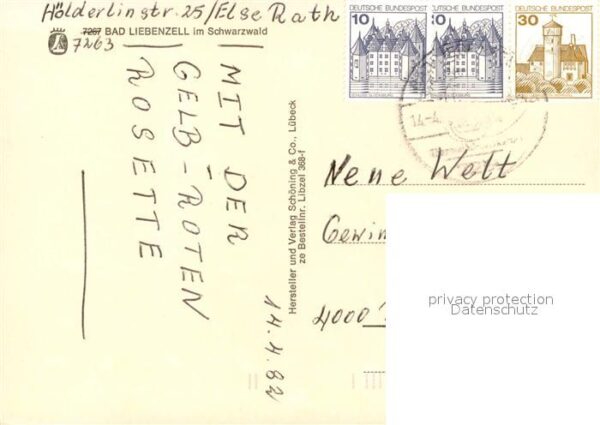 Hölderlinstr. 25/Else Rath
7267 BAD LIEBENZELL im Schwarzwald
7263
MIT DER
GELB-ROTEN
ROSETTE
14.4.82
Hersteller und Verlag Schöning & Co., Lübeck
ze Bestellnr. Libzel 368-f
10 DEUTSCHE BUNDESPOST
10 DEUTSCHE BUNDESPOST
30 DEUTSCHE BUNDESPOST
14.-4.
Neue Welt
Gewin
4000
privacy protection
Datenschutz